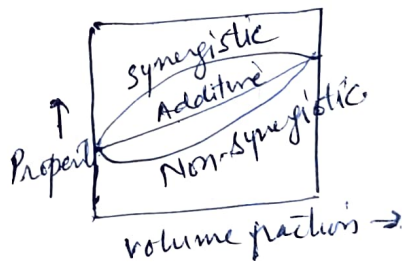 Synergistic
Additive
Non-Synergistic.
Propert
volume fraction →